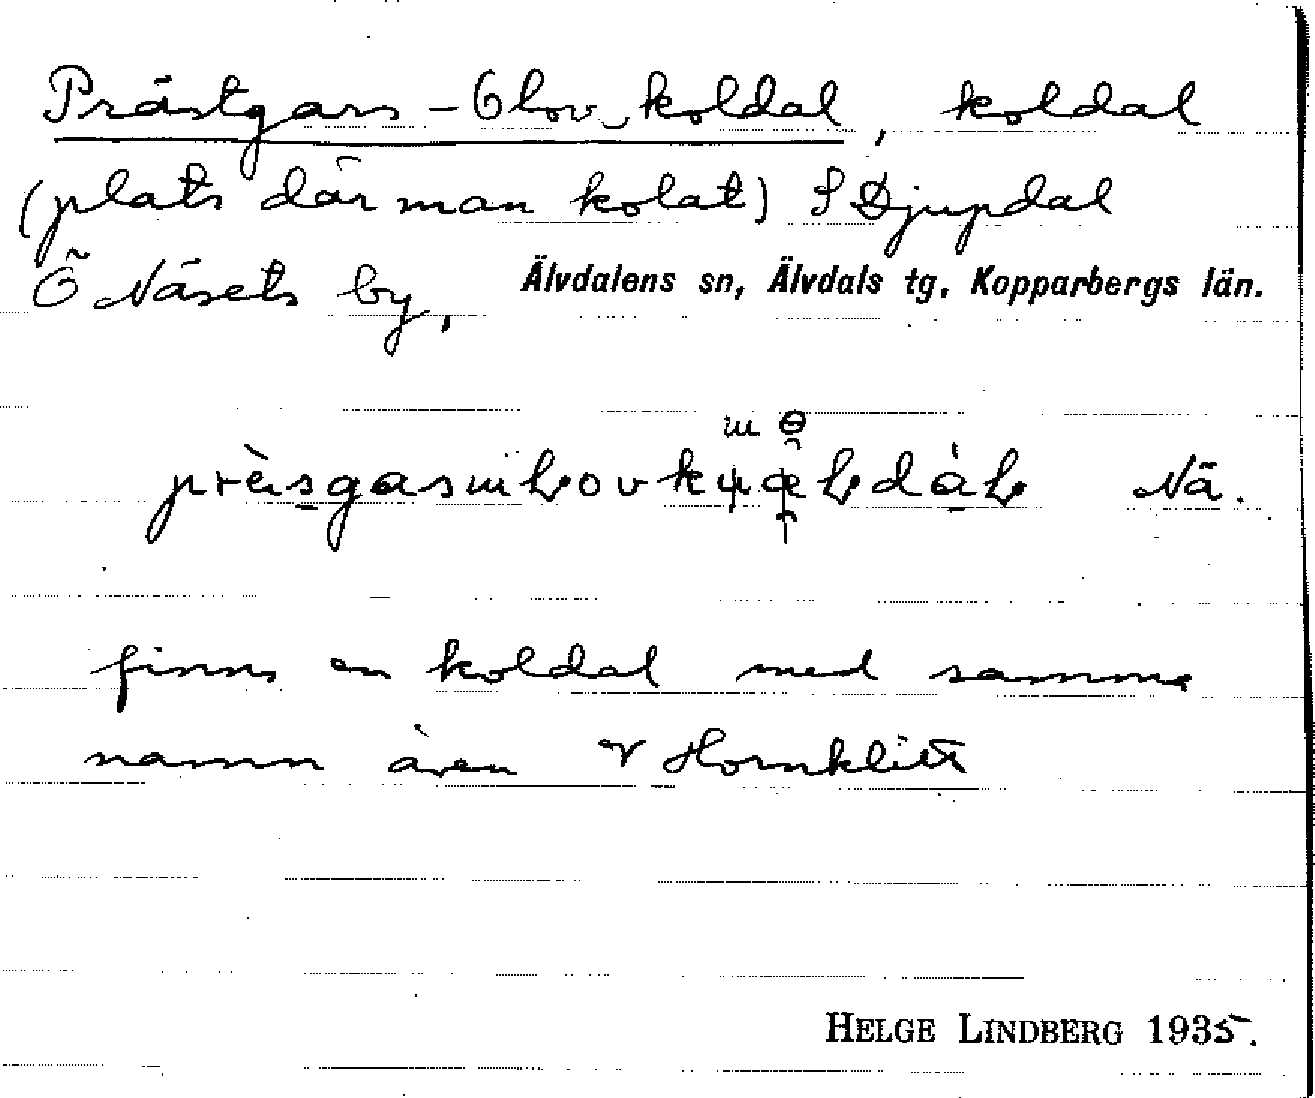 Prästgars-Olov_koldal, koldal
(plats där man kolat) S Djupdal
Ö Näsets by, Älvdalens sn, Älvdals tg, Kopparbergs län.
Nä.
finns en koldal med samma
namn även V Hornklitt
HELGE LINDBERG 1935.